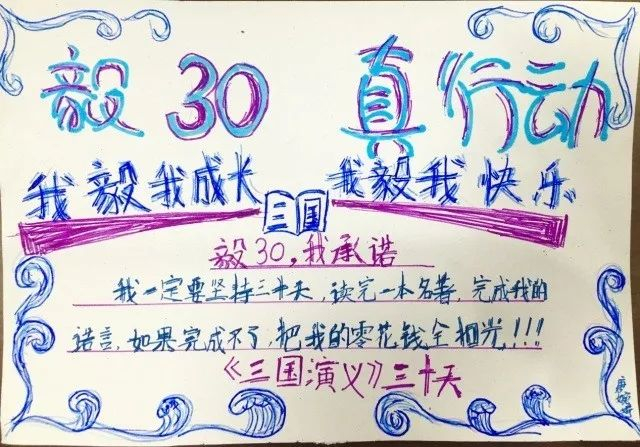 毅30 真行动
我毅我成长 我毅我快乐
三国
毅30,我承诺
我一定要坚持三十天,读完一本名著,完成我的
诺言,如果完成不了,把我的零花钱全捐光!!!
《三国演义》三十天